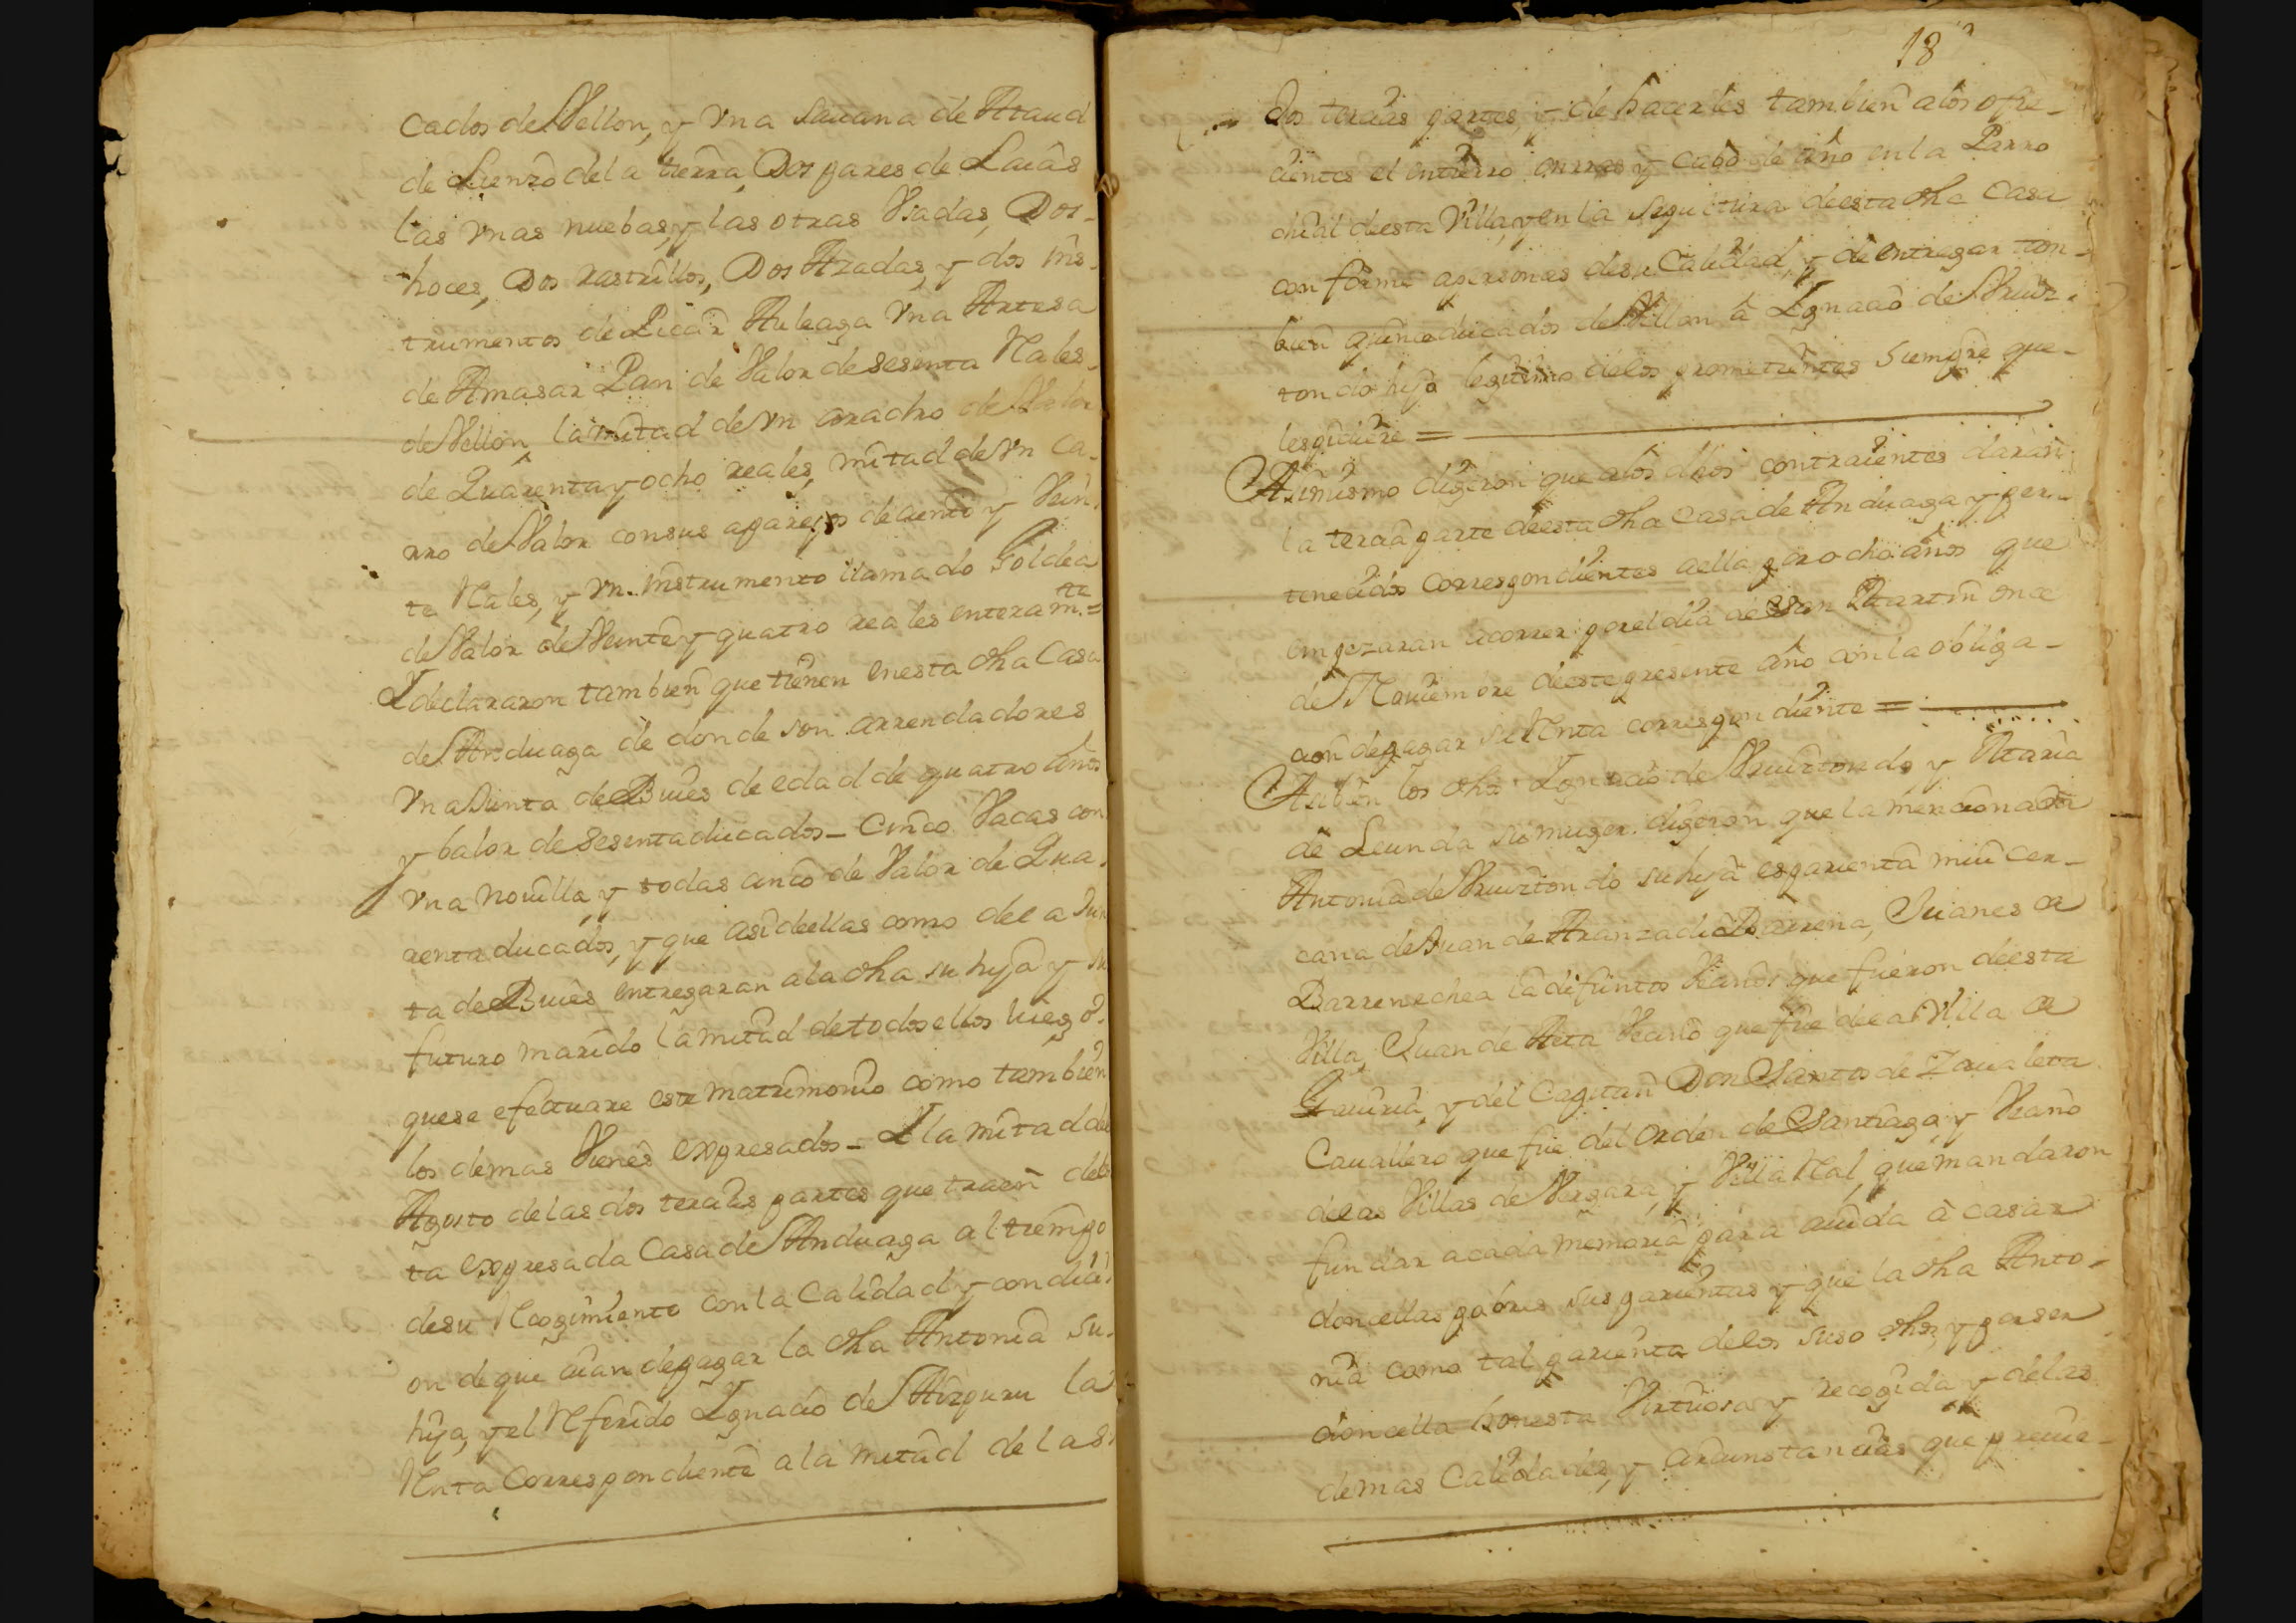 cados de Vellon, y Vna Sauana de Ataud
de Lienzo dela tierra, Dos pares de Laias
las Vnas nuebas, y las otras Vsadas, Dos
hoces, Dos Rastrillos, Dos Azadas, y dos Ins-
trumentos de Picar Auleaga Vna Artesa
de Amasar Pan de Valor de sesenta Rales
de Vellon, la mitad de Vn aracho de Valor
de Quarenta y ocho reales, mitad de Vn Ca-
rro de Valor consus aparejos de ciento y Vein-
te Rales, y Vn Instrumento llamado Goldea
de Valor de Veinte y quatro reales enteram.te =
Y declararon tambien que tienen en esta dha Casa
de Anduaga de donde son arrendadores
Vna Iunta de Bueies de edad de quatro años
y balor de sesenta ducados _ Cinco Vacas con
Vna nouilla, y todas cinco de Valor de Qua-
renta ducados, y que asi deellas como de la Iun
ta de Bueies entregaran ala dha su hija y su
futuro marido la mitad de todos ellos luego
que se efectuare este matrimonio como tambien
los demas Vienes expresados _ Y la mitad del
Agosto de las dos tercias partes que traen des
ta expresada Casa de Anduaga al tiempo
de su Recogimiento con la Calidad y condici
on de que aian de pagar la dha Antonia su
hija, y el Referido Ygnacio de Aizpuru la
Renta Correspondiente a la mitad de las
18
Dos tercias partes, y de hacerles tambien a los ofre-
cientes el entierro onras y cabo de año en la Parro
chial deesta Villa, y en la Sepultura deesta dha Casa
conforme a personas de su Calidad, y de entregar tam-
bien quince ducados de Vellon à Ygnacio de Vruiz-
tondo hijo legitimo de los prometientes siempre que
les pidiere =
Asimismo digeron que a los dhos contraientes daran
la tercia parte deesta dha Casa de Anduaga y per-
tenecidos correspondientes a ella por ocho años que
empezaran a correr por el dia de San Martin once
de Nouiembre deeste presente año con la obliga-
cion de pagar su Renta correspondiente =
Asi bien los dhos Ygnacio de Vruiztondo y Maria
de Leunda su muger digeron que la mencionada
Antonia de Vruiztondo su hija es parienta mui cer-
cana de Iuan de Aranzadi Barrena, Iuanes de
Barrenechea ia difuntos Vecinos que fueron deesta
Villa, Iuan de Aeta Vecino que fue de la Villa de
Gauiria, y del Capitan Don Santos de Zaualeta
Cauallero que fue del Orden de Santiago, y Vecino
de las Villas de Vergara, y Villa Real, que mandaron
fundar a cada memoria para aiuda à casar
doncellas pobres sus parientas y que la dha Anto-
nia como tal parienta de los suso dhos, y por ser
doncella honesta Virtuosa y recogida y de las
demas Calidades, y circunstancias que preuie-